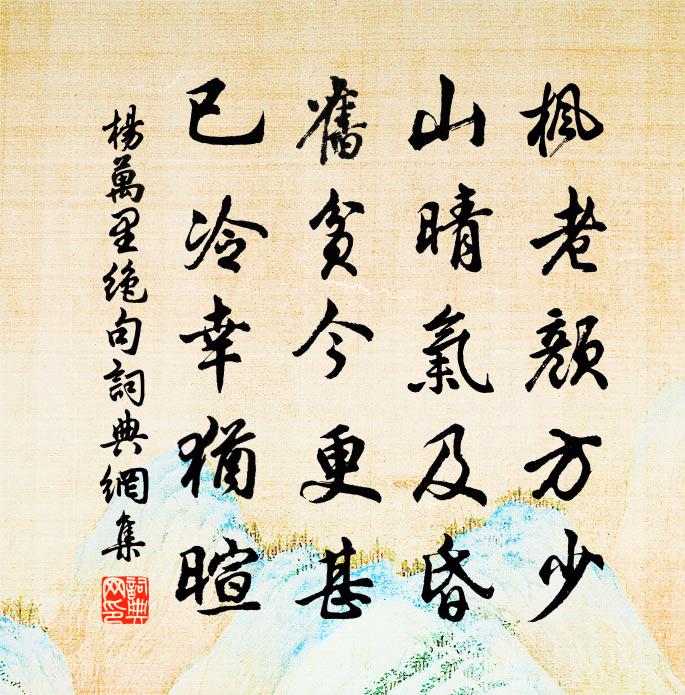 楓老顏方少
山晴氣及昏
舊貧今更甚
已冷幸猶暄
楊萬里絕句詞典網集
詞典網印